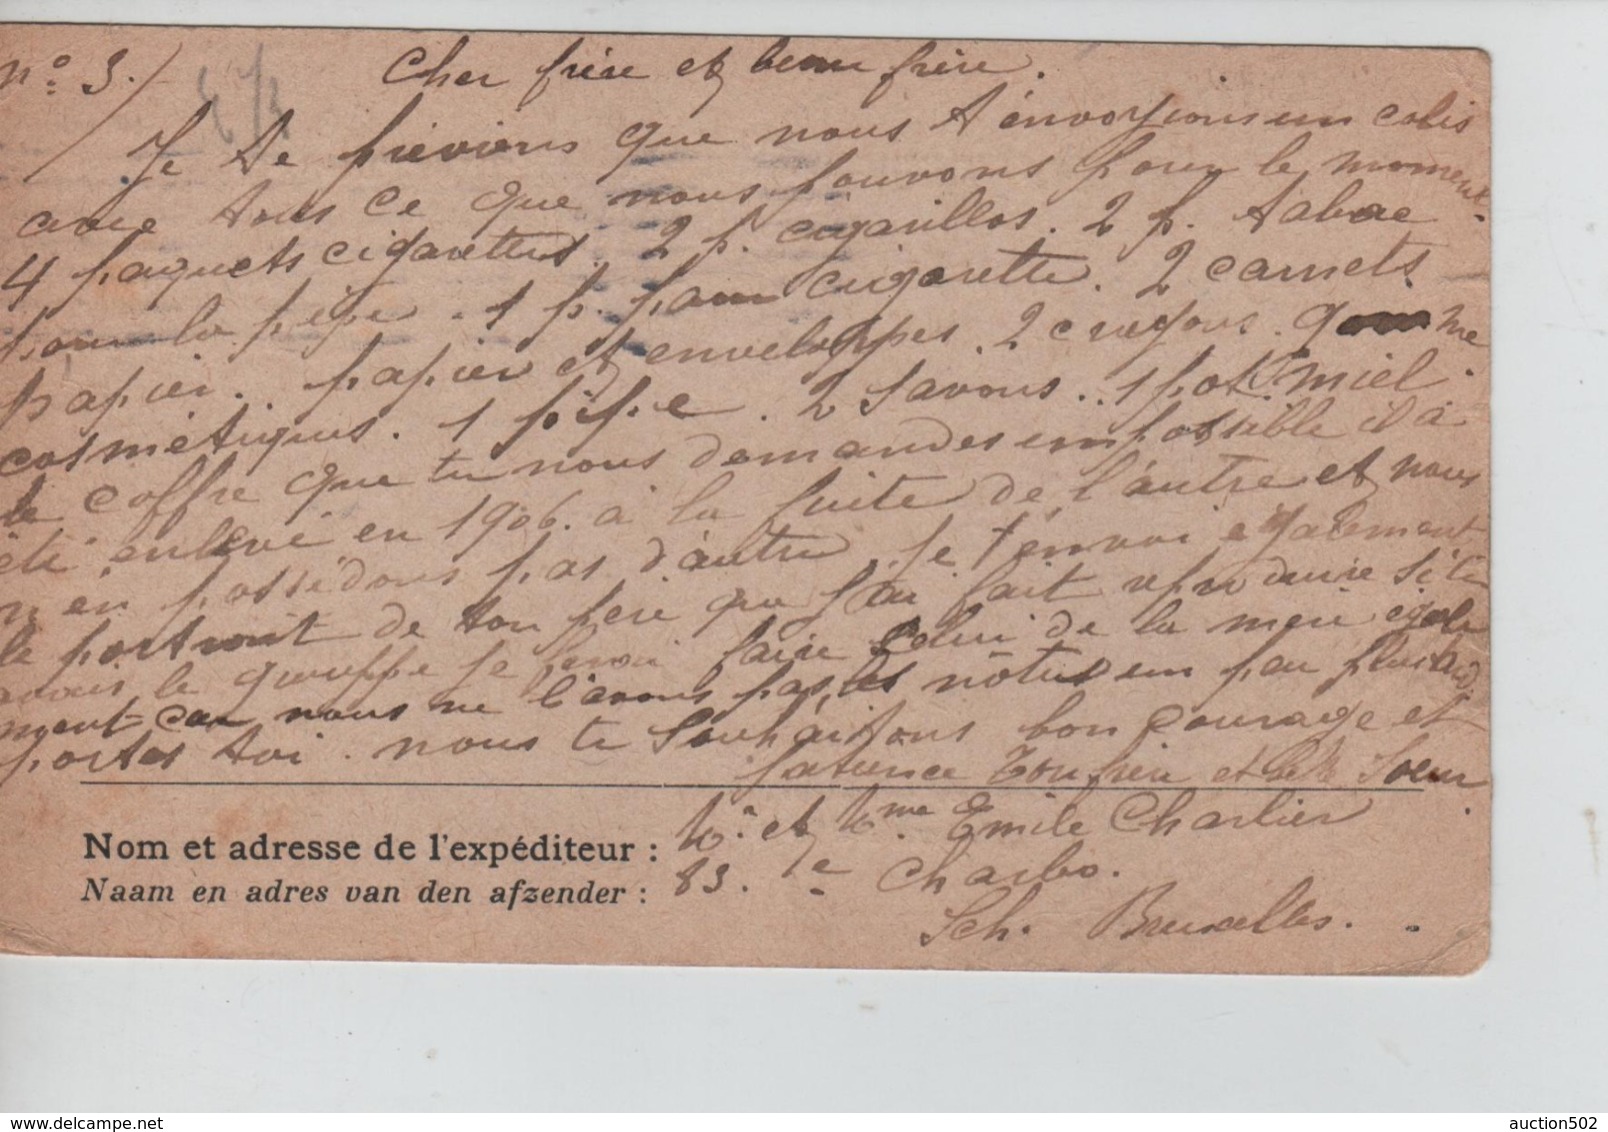 n° 3./
Cher frère et beau frère.
Je te préviens que nous t'envoyions un colis
avec tous ce que nous pouvons pour le moment.
4 paquets cigarettes. 2 p. cigarillos. 2 p. tabac
pour la pipe. 1 p. pour cigarette. 2 carnets
papier. papier et enveloppes. 2 crayons. gomme
cosmétiques. 1 pipe. 2 savons.. 1 pot miel.
le coffre que tu nous demandes impossible il à
été enlevé en 1906. à la suite de l'autre et nous
n'en possédons pas d'autre, je t'envoi egalement
le portrait de ton père que j'ai fait reproduire si tu
avais le grouppe je ferai faire celui de la mère égale
ment car nous ne l'avons pas, les nôtres un peu plus tard,
portes toi. nous te souhaitons bon courage et
patience Ton frère et belle Soeur
Mr et Mme Emile Charlier
Nom et adresse de l'expéditeur :
83. Charbo.
Naam en adres van den afzender :
Sch. Bruxelles.
auction502